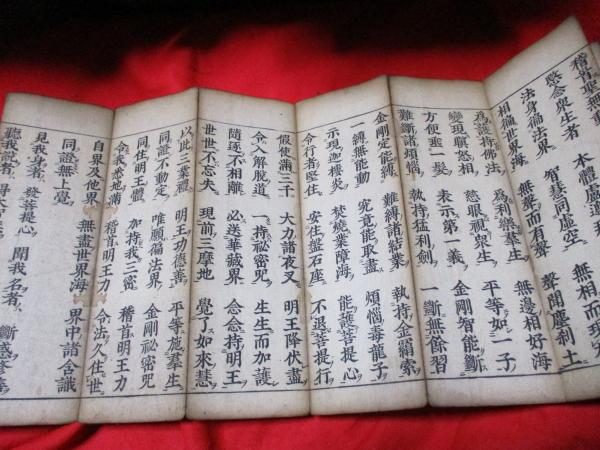 稽首聖無動
愍念衆生者 本體盧遮
法身偏法界 智慧同虛空 無相而現
相偏世界海 無聲而有聲 聲聞塵刹土
爲護持佛法 爲利樂羣生 無邊相好海
變現瞋怒相 慈眼視衆生 平等如一子
方便垂一髮 表示第一義 金剛智能斷
難斷諸煩惱 執持猛利劍 一斷無餘習
金剛定能縛 難縛諸結業 執持金羂索
一縛無能動 究竟能取盡 煩惱毒龍子
示現迦樓炎 焚燒業障海 能護菩提心
令行者堅住 安住盤石座 不退菩提行
假使滿三千 大力諸夜叉 明王降伏盡
令入解脱道 一持祕密呪 生生而加護
隨逐不相離 必送華藏界 念念持明王
世世不忘失 現前三摩地 覺了如來慧
以此三業禮 明王功德善 平等施羣生
同證不動定 唯願偏法界 金剛祕密呪
同住明王體 加持我三密 稽首明王力
令我悉地滿 稽首明王力 令法久住世
自界及他界 無盡世界海 界中諸含識
同證無上覺
見我身者 發菩提心 聞我名者 斷惑修善
聽我說者 得大